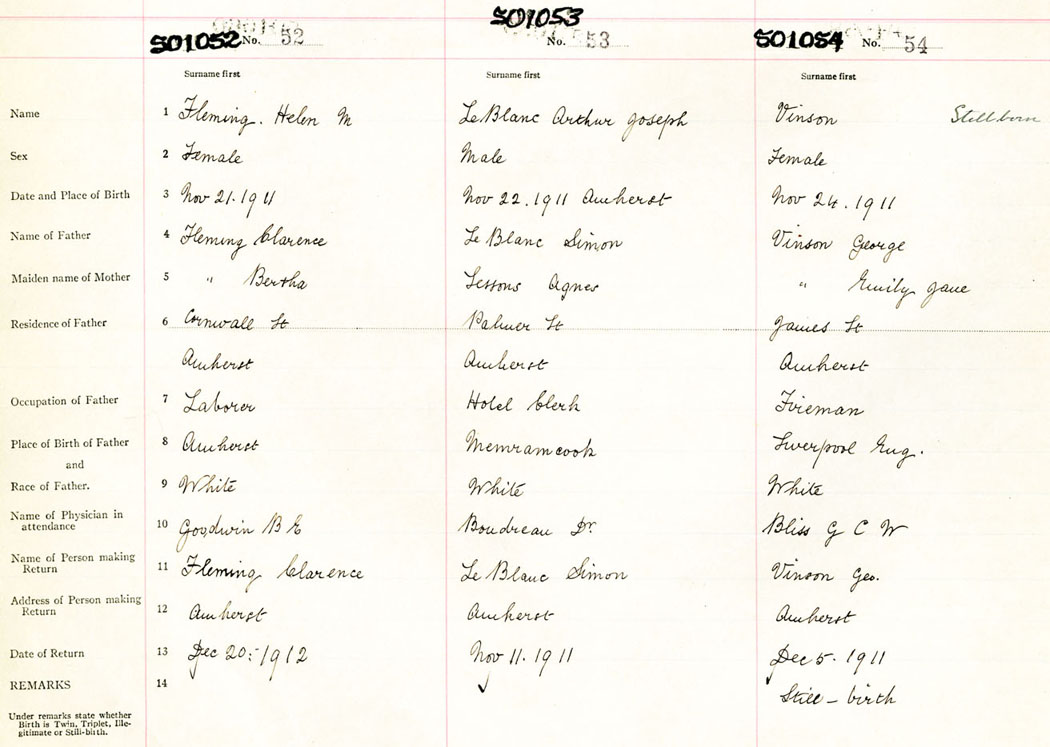 SO1052 No. 52 SO1053 No. 53 SO1054 No. 54
Surname first Surname first Surname first
Name 1 Fleming. Helen M LeBlanc Arthur Joseph Vinson Stillborn
Sex 2 Female Male Female
Date and Place of Birth 3 Nov 21. 1911 Nov 22. 1911 Amherst Nov 24. 1911
Name of Father 4 Fleming Clarence Le Blanc Simon Vinson George
Maiden name of Mother 5 " Bertha Lessons Agnes " Emily Jane
Residence of Father 6 Cornwall St Palmer St James St
Amherst Amherst Amherst
Occupation of Father 7 Laborer Hotel Clerk Fireman
Place of Birth of Father 8 Amherst Memramcook Liverpool Eng.
and
Race of Father. 9 White White White
Name of Physician in
attendance 10 Goodwin B E Boudreau Dr. Bliss G C W
Name of Person making
Return 11 Fleming Clarence Le Blanc Simon Vinson Geo.
Address of Person making
Return 12 Amherst Amherst Amherst
Date of Return 13 Dec 20:-1912 Nov 11. 1911 Dec 5. 1911
REMARKS 14 Still - birth
Under remarks state whether
Birth is Twin, Triplet, Ille-
gitimate or Still-birth.